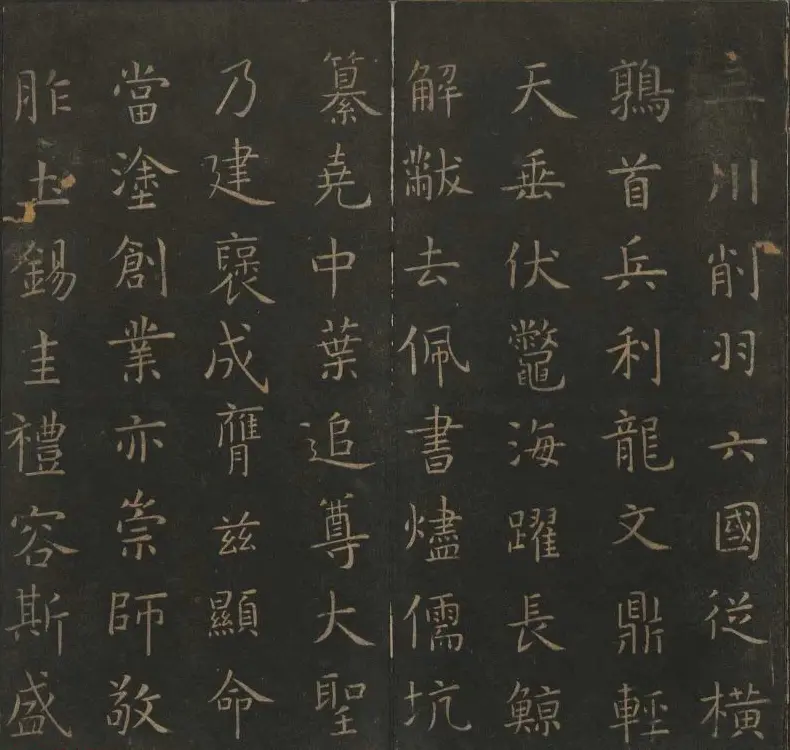 三川削羽六國從橫
鶉首兵利龍文鼎輕
天垂伏鼈海躍長鯨
解黻去佩書燼儒坑
纂堯中葉追尊大聖
乃建褒成膺茲顯命
當塗創業亦崇師敬
胙土錫圭禮容斯盛